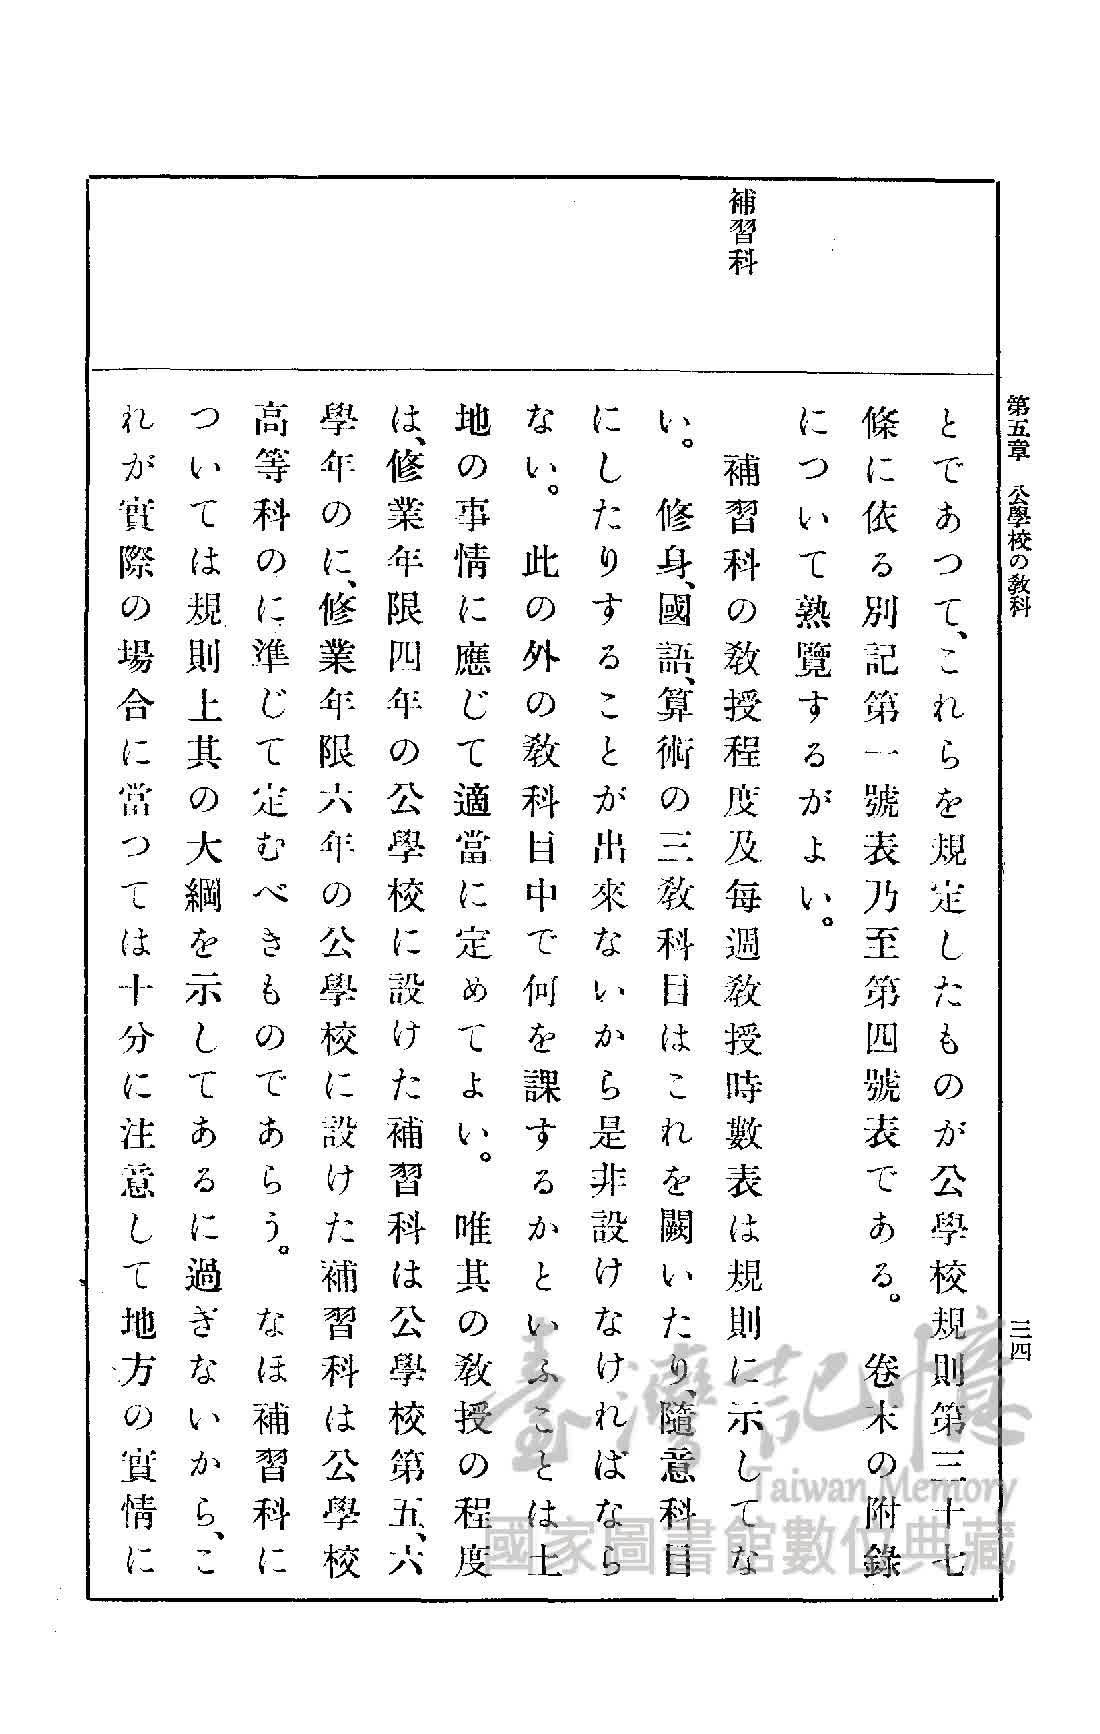 第五章　公學校の教科
三四
補習科
とであつて、これらを規定したものが公學校規則第三十七
條に依る別記第一號表乃至第四號表である。卷末の附錄
について熟覽するがよい。
補習科の教授程度及每週教授時數表は規則に示してな
い。修身、國語、算術の三教科目はこれを闕いたり、隨意科目
にしたりすることが出來ないから是非設けなければなら
ない。此の外の教科目中で何を課するかといふことは土
地の事情に應じて適當に定めてよい。唯其の教授の程度
は、修業年限四年の公學校に設けた補習科は公學校第五、六
學年のに、修業年限六年の公學校に設けた補習科は公學校
高等科のに準じて定むべきものであらう。なほ補習科に
ついては規則上其の大綱を示してあるに過ぎないから、こ
れが實際の場合に當つては十分に注意して地方の實情に
臺灣記憶
Taiwan Memory
國家圖書館數位典藏